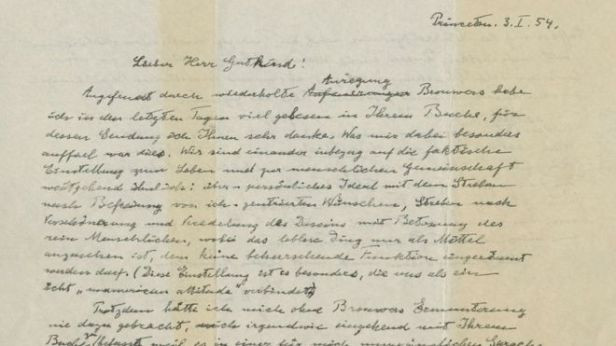 Princeton. 3. I. 54.
Lieber Herr Gutkind!
Anregung
Angefeuert durch wiederholte Aufmunterungen Brouwers habe
ich in den letzten Tagen viel gelesen in Ihrem Buche, für
dessen Sendung ich Ihnen sehr danke. Was mir dabei besonders
auffiel war dies. Wir sind einander inbezug auf die faktische
Einstellung zum Leben und zur menschlichen Gemeinschaft
weitgehend ähnlich: über-persönliches Ideal mit dem Streben
nach Befreiung von ich-zentrierten Wünschen, Streben nach
Verschönerung und Veredelung des Daseins mit Betonung des
rein Menschlichen, wobei das leblose Ding nur als Mittel
anzusehen ist, dem keine beherrschende Funktion eingeräumt
werden darf. (Diese Einstellung ist es besonders, die uns als ein
echt "unamerican attitude" verbindet)
Trotzdem hätte ich mich ohne Brouwers Ermunterung
nie dazu gebracht, mich irgendwie eingehend mit Ihrem
Buche weil es in einer für mich unzugänglichen Sprache